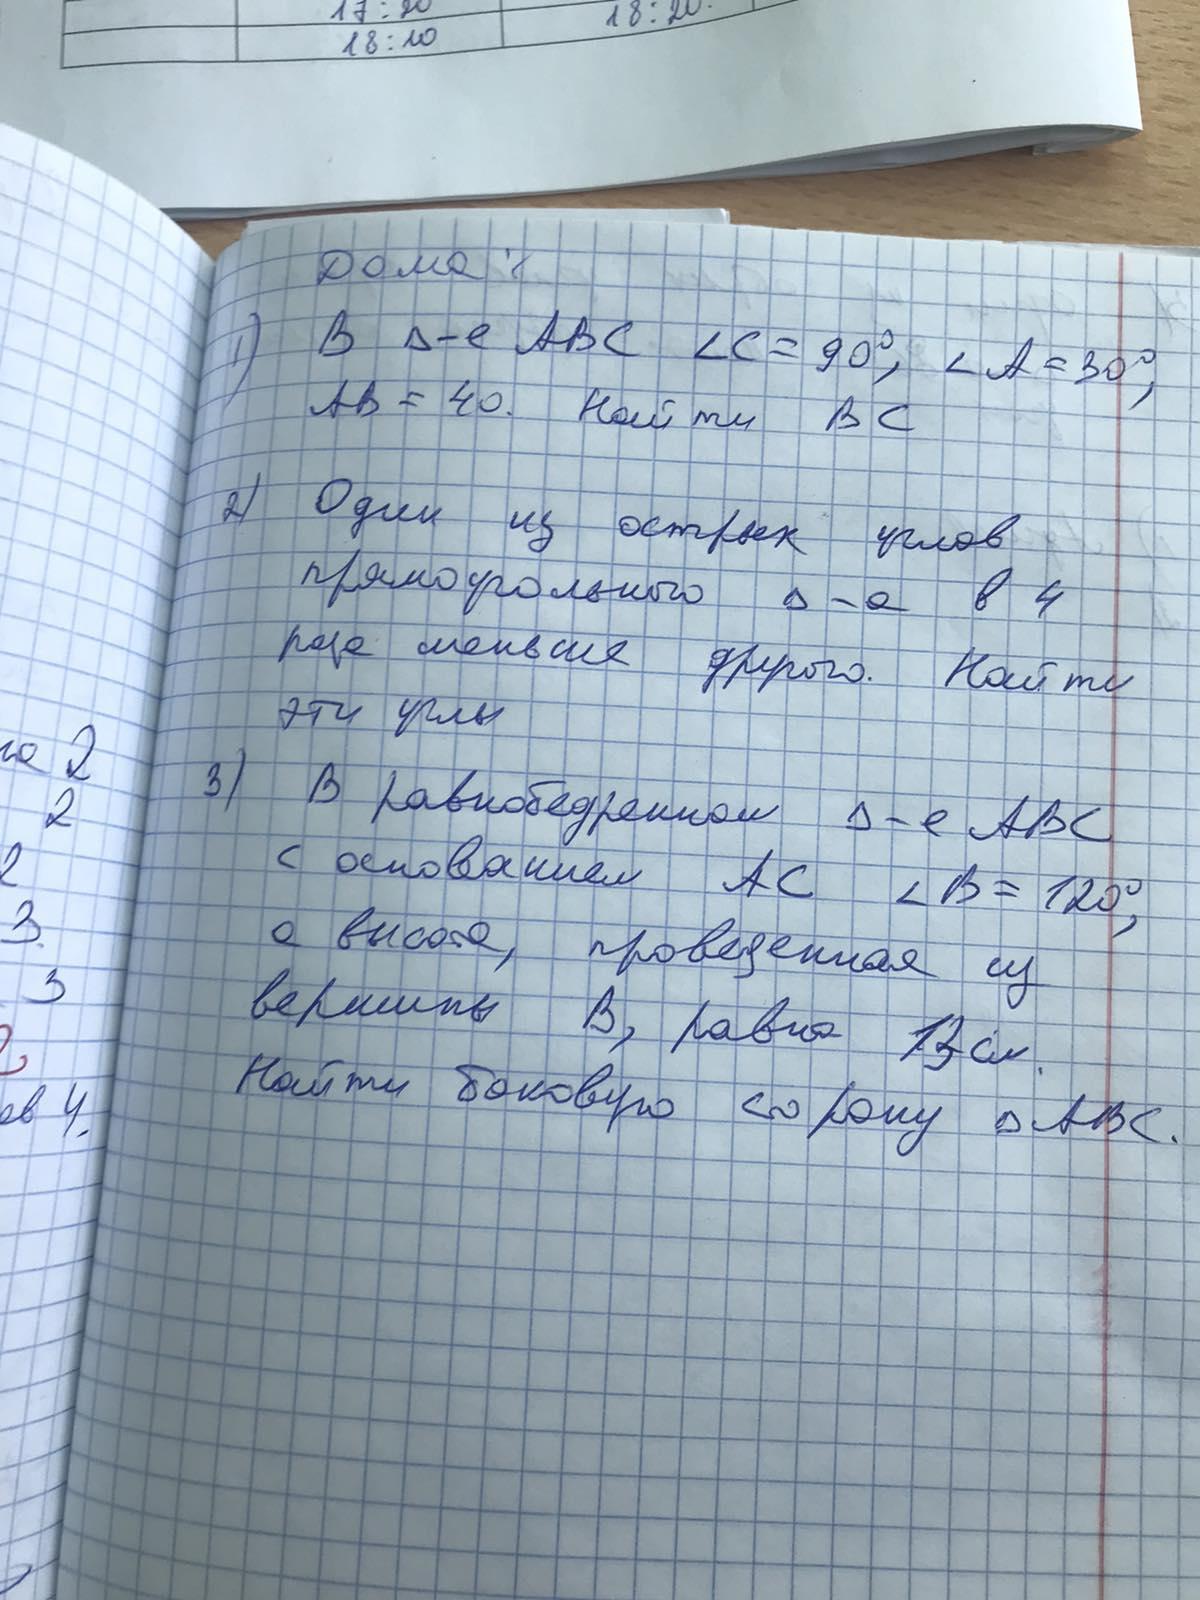 17:20 18:20.
18:10
Дома:
1) В Δ-е АВС ∠С = 90°, ∠А = 30°,
АВ = 40. Найти ВС
2) Один из острых углов
прямоугольного Δ-а в 4
раза меньше другого. Найти
эти углы
3) В равнобедренном Δ-е АВС
с основанием АС ∠В = 120°,
а высота, проведенная из
вершины В, равна 13 см.
Найти боковую сторону Δ АВС.
2
2
2
3.
3
ов 4.